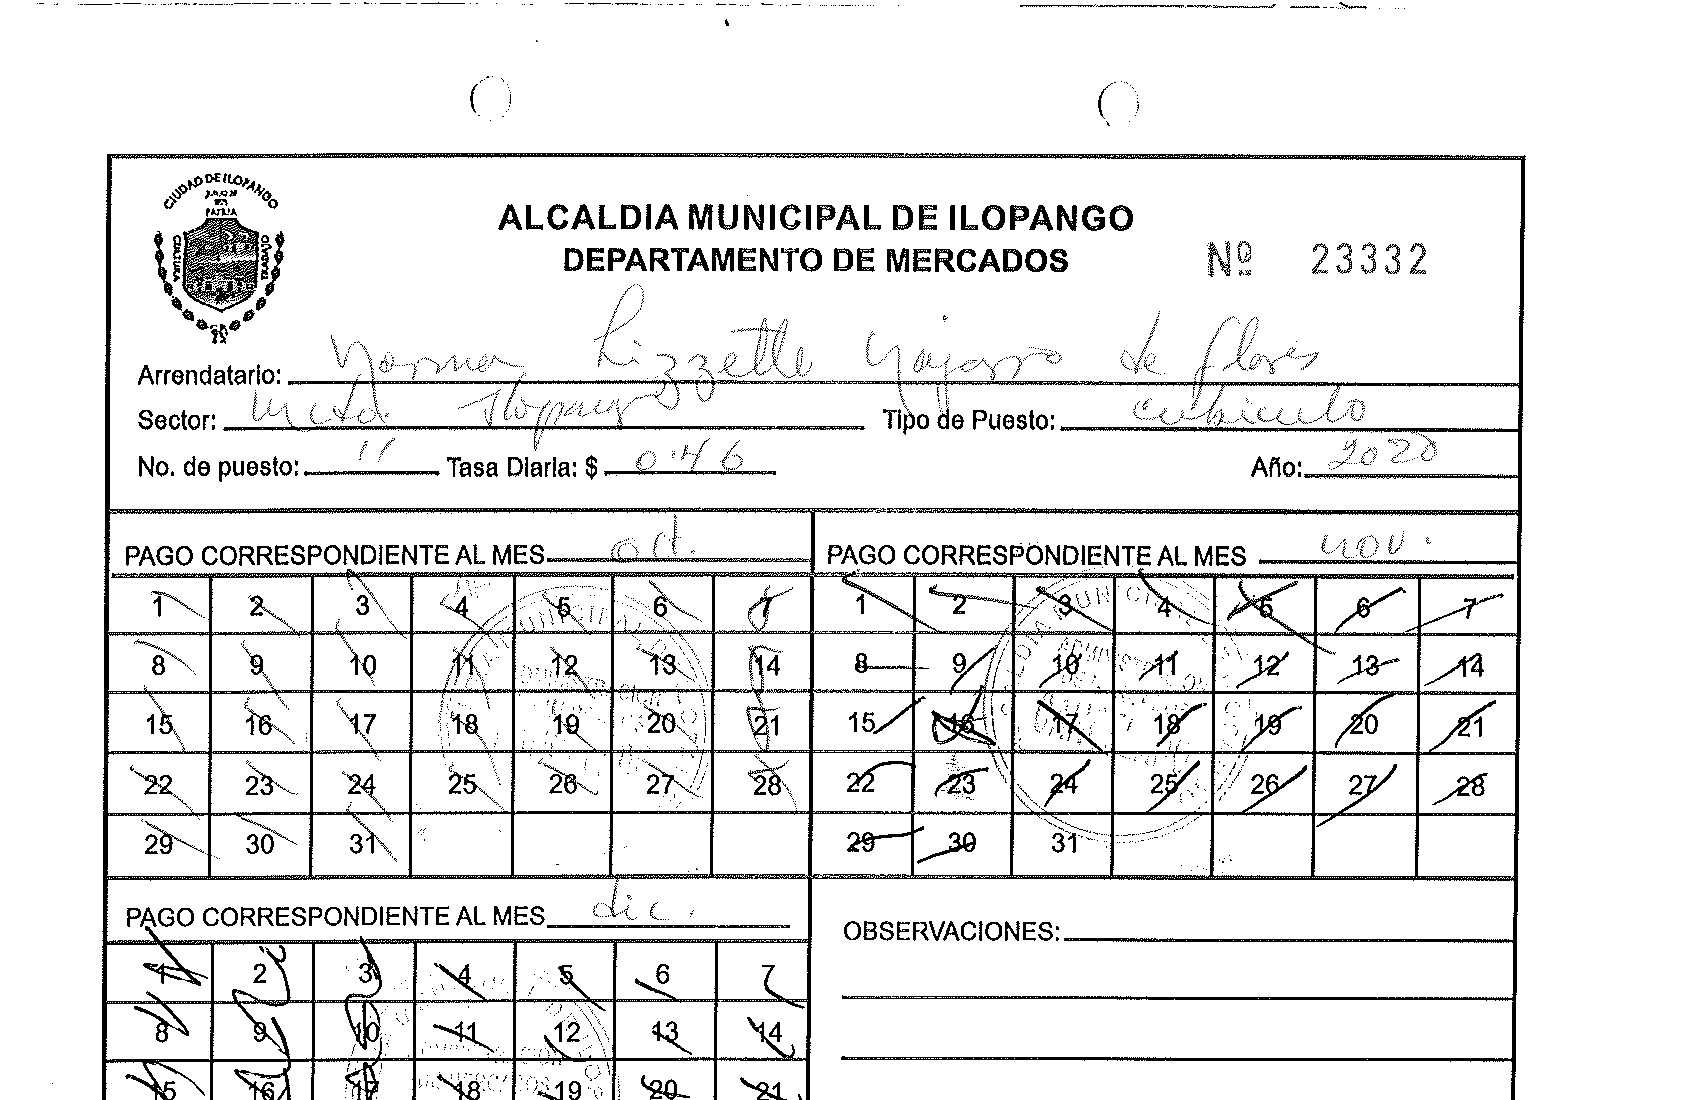 CIUDAD DE ILOPANGO
PATRIA
CULTURA
ALCALDIA MUNICIPAL DE ILOPANGO
DEPARTAMENTO DE MERCADOS
Nº 23332
Arrendatario: Norma Lizzette Najarro de Flores
Sector: Ilopango Tipo de Puesto: cubiculo
No. de puesto: 11 Tasa Diaria: $ 0.46 Año: 2020
PAGO CORRESPONDIENTE AL MES oct.
1 2 3 4 5 6 7
8 9 10 11 12 13 14
15 16 17 18 19 20 21
22 23 24 25 26 27 28
29 30 31
PAGO CORRESPONDIENTE AL MES nov.
1 2 3 4 5 6 7
8 9 10 11 12 13 14
15 16 17 18 19 20 21
22 23 24 25 26 27 28
29 30 31
PAGO CORRESPONDIENTE AL MES dic.
1 2 3 4 5 6 7
8 9 10 11 12 13 14
15 16 17 18 19 20 21
OBSERVACIONES: